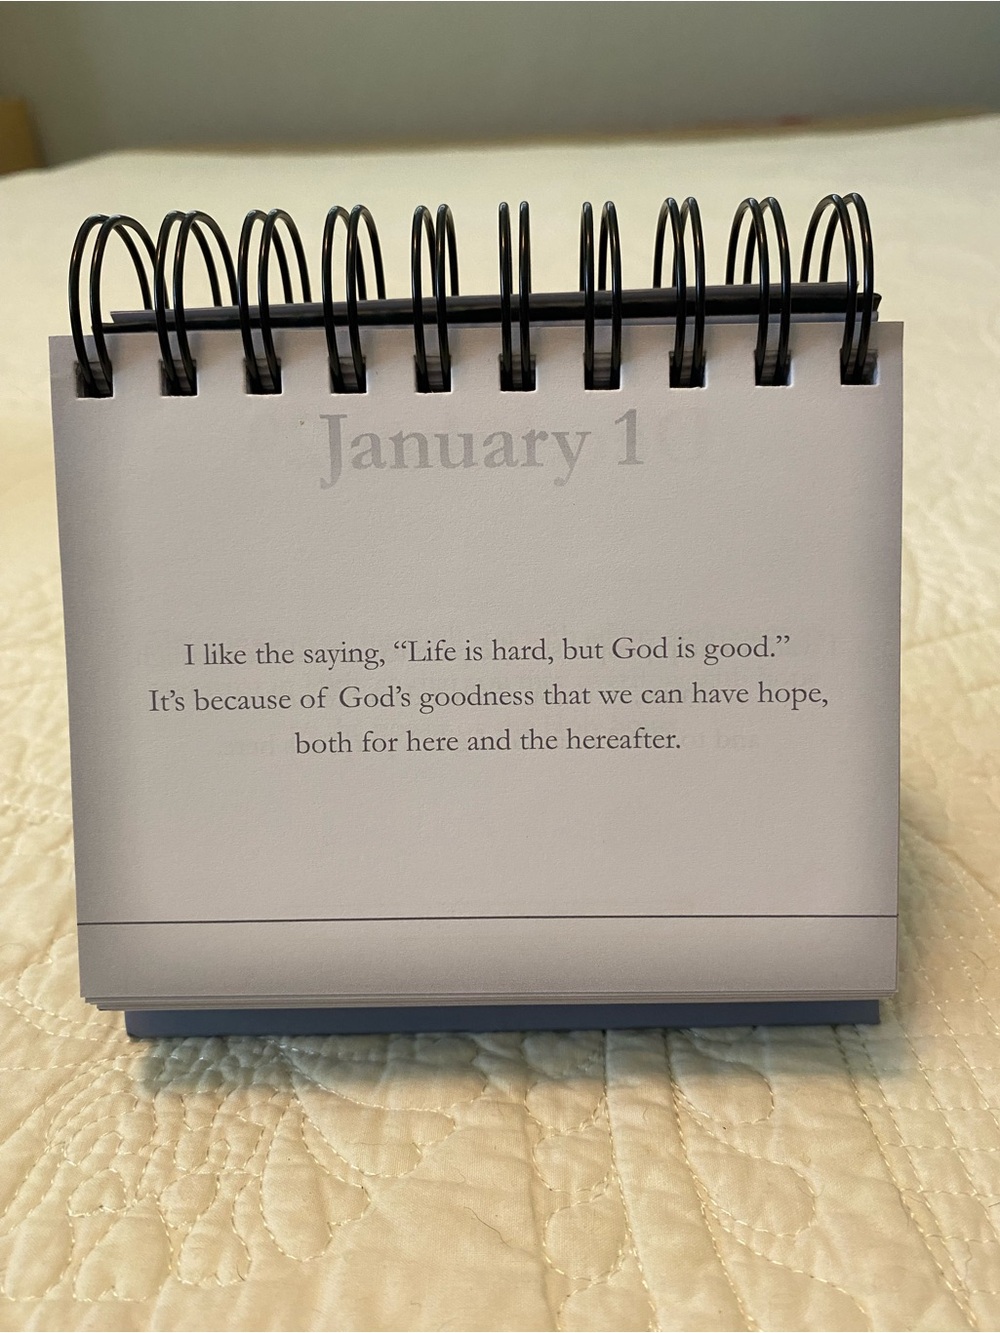 January 1
I like the saying, “Life is hard, but God is good.”
It’s because of God’s goodness that we can have hope,
both for here and the hereafter.